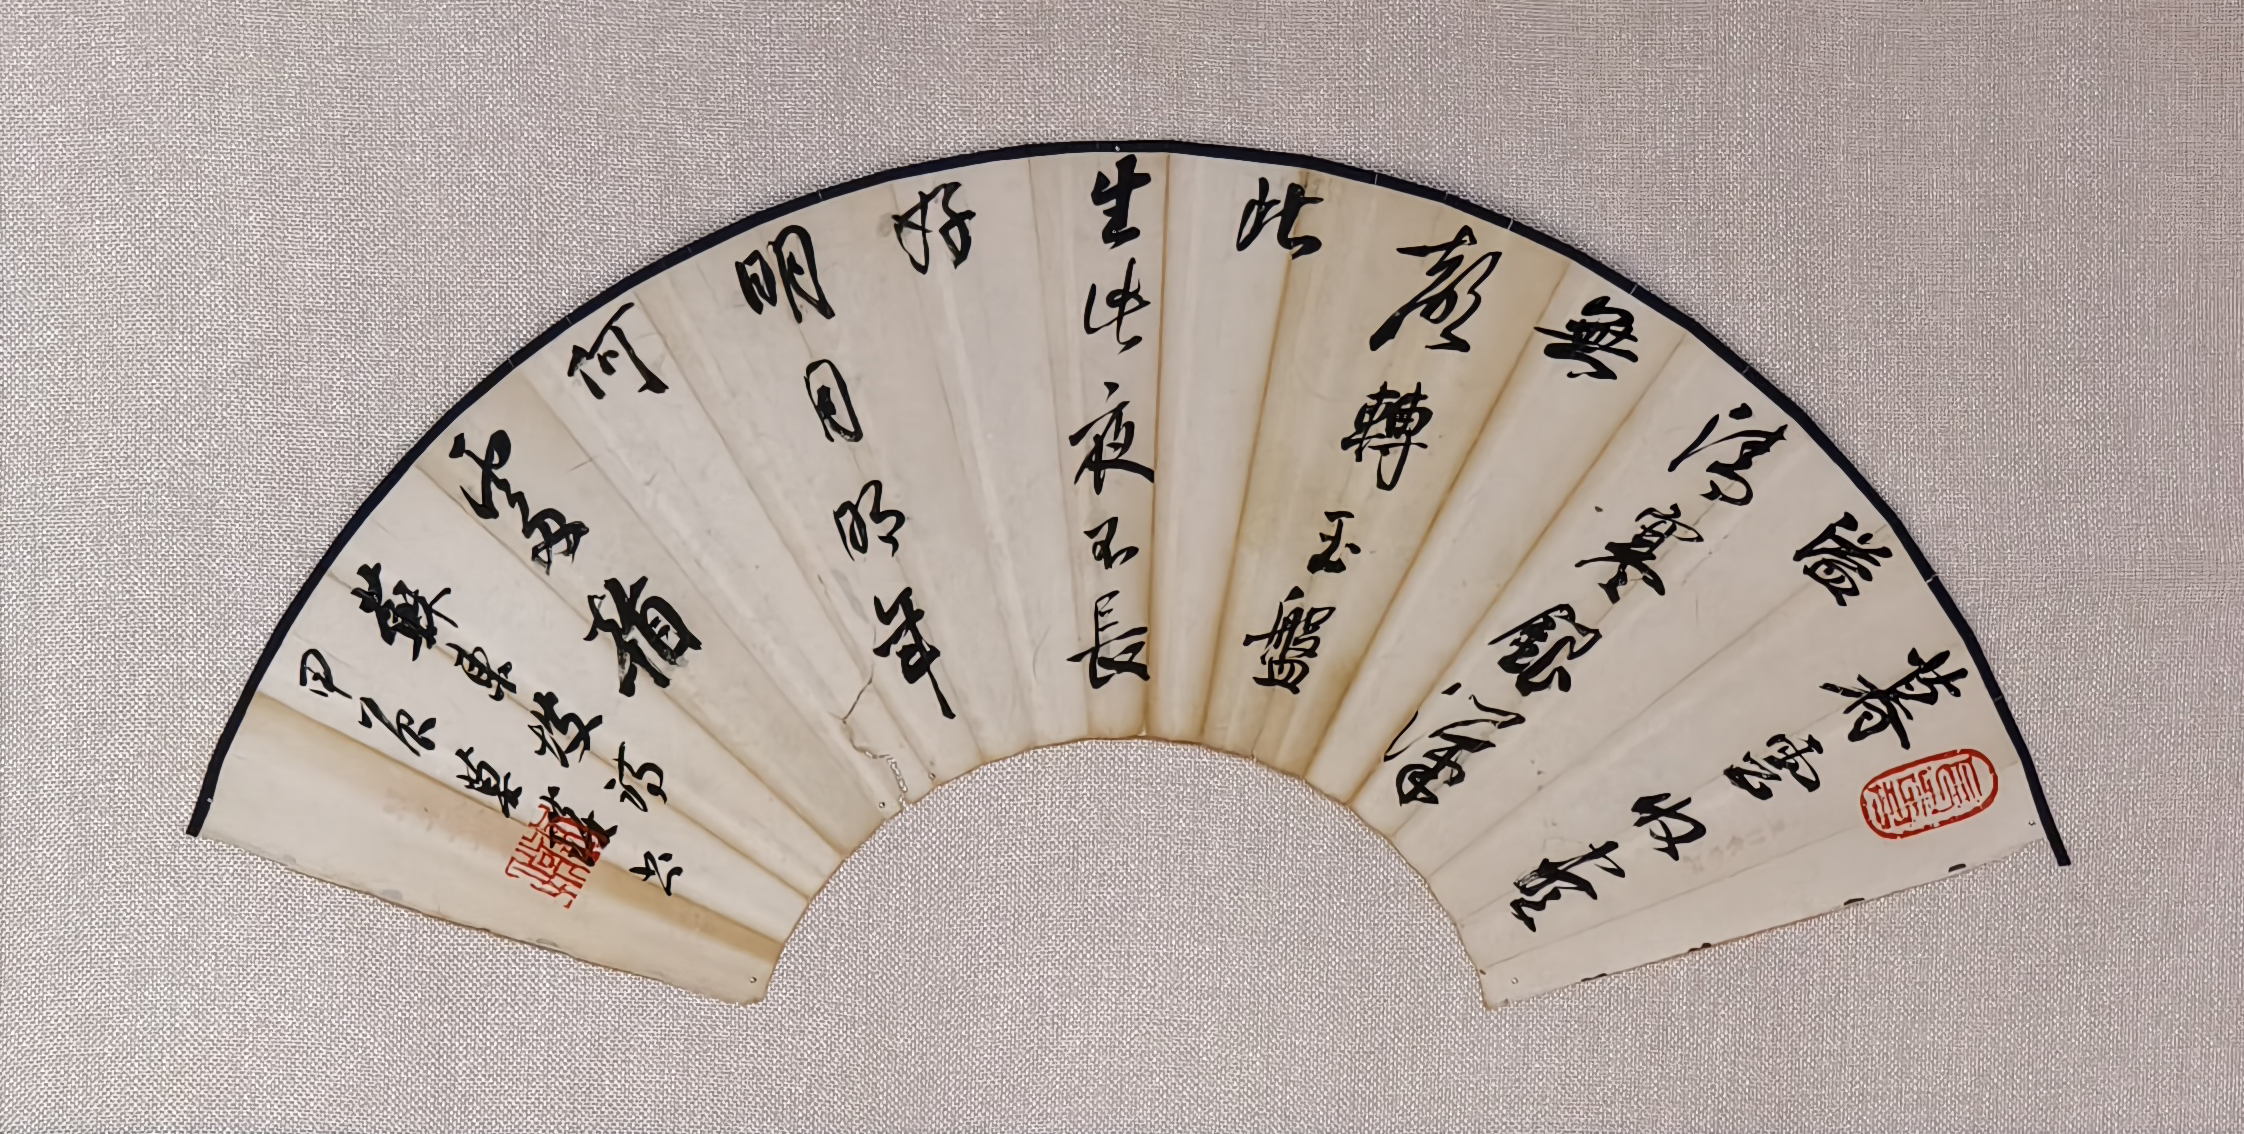 暮雲收盡
溢
清寒銀漢
無
聲轉玉盤
此
生此夜不長
好
明月明年
何
處看
蘇東坡詩書
甲辰